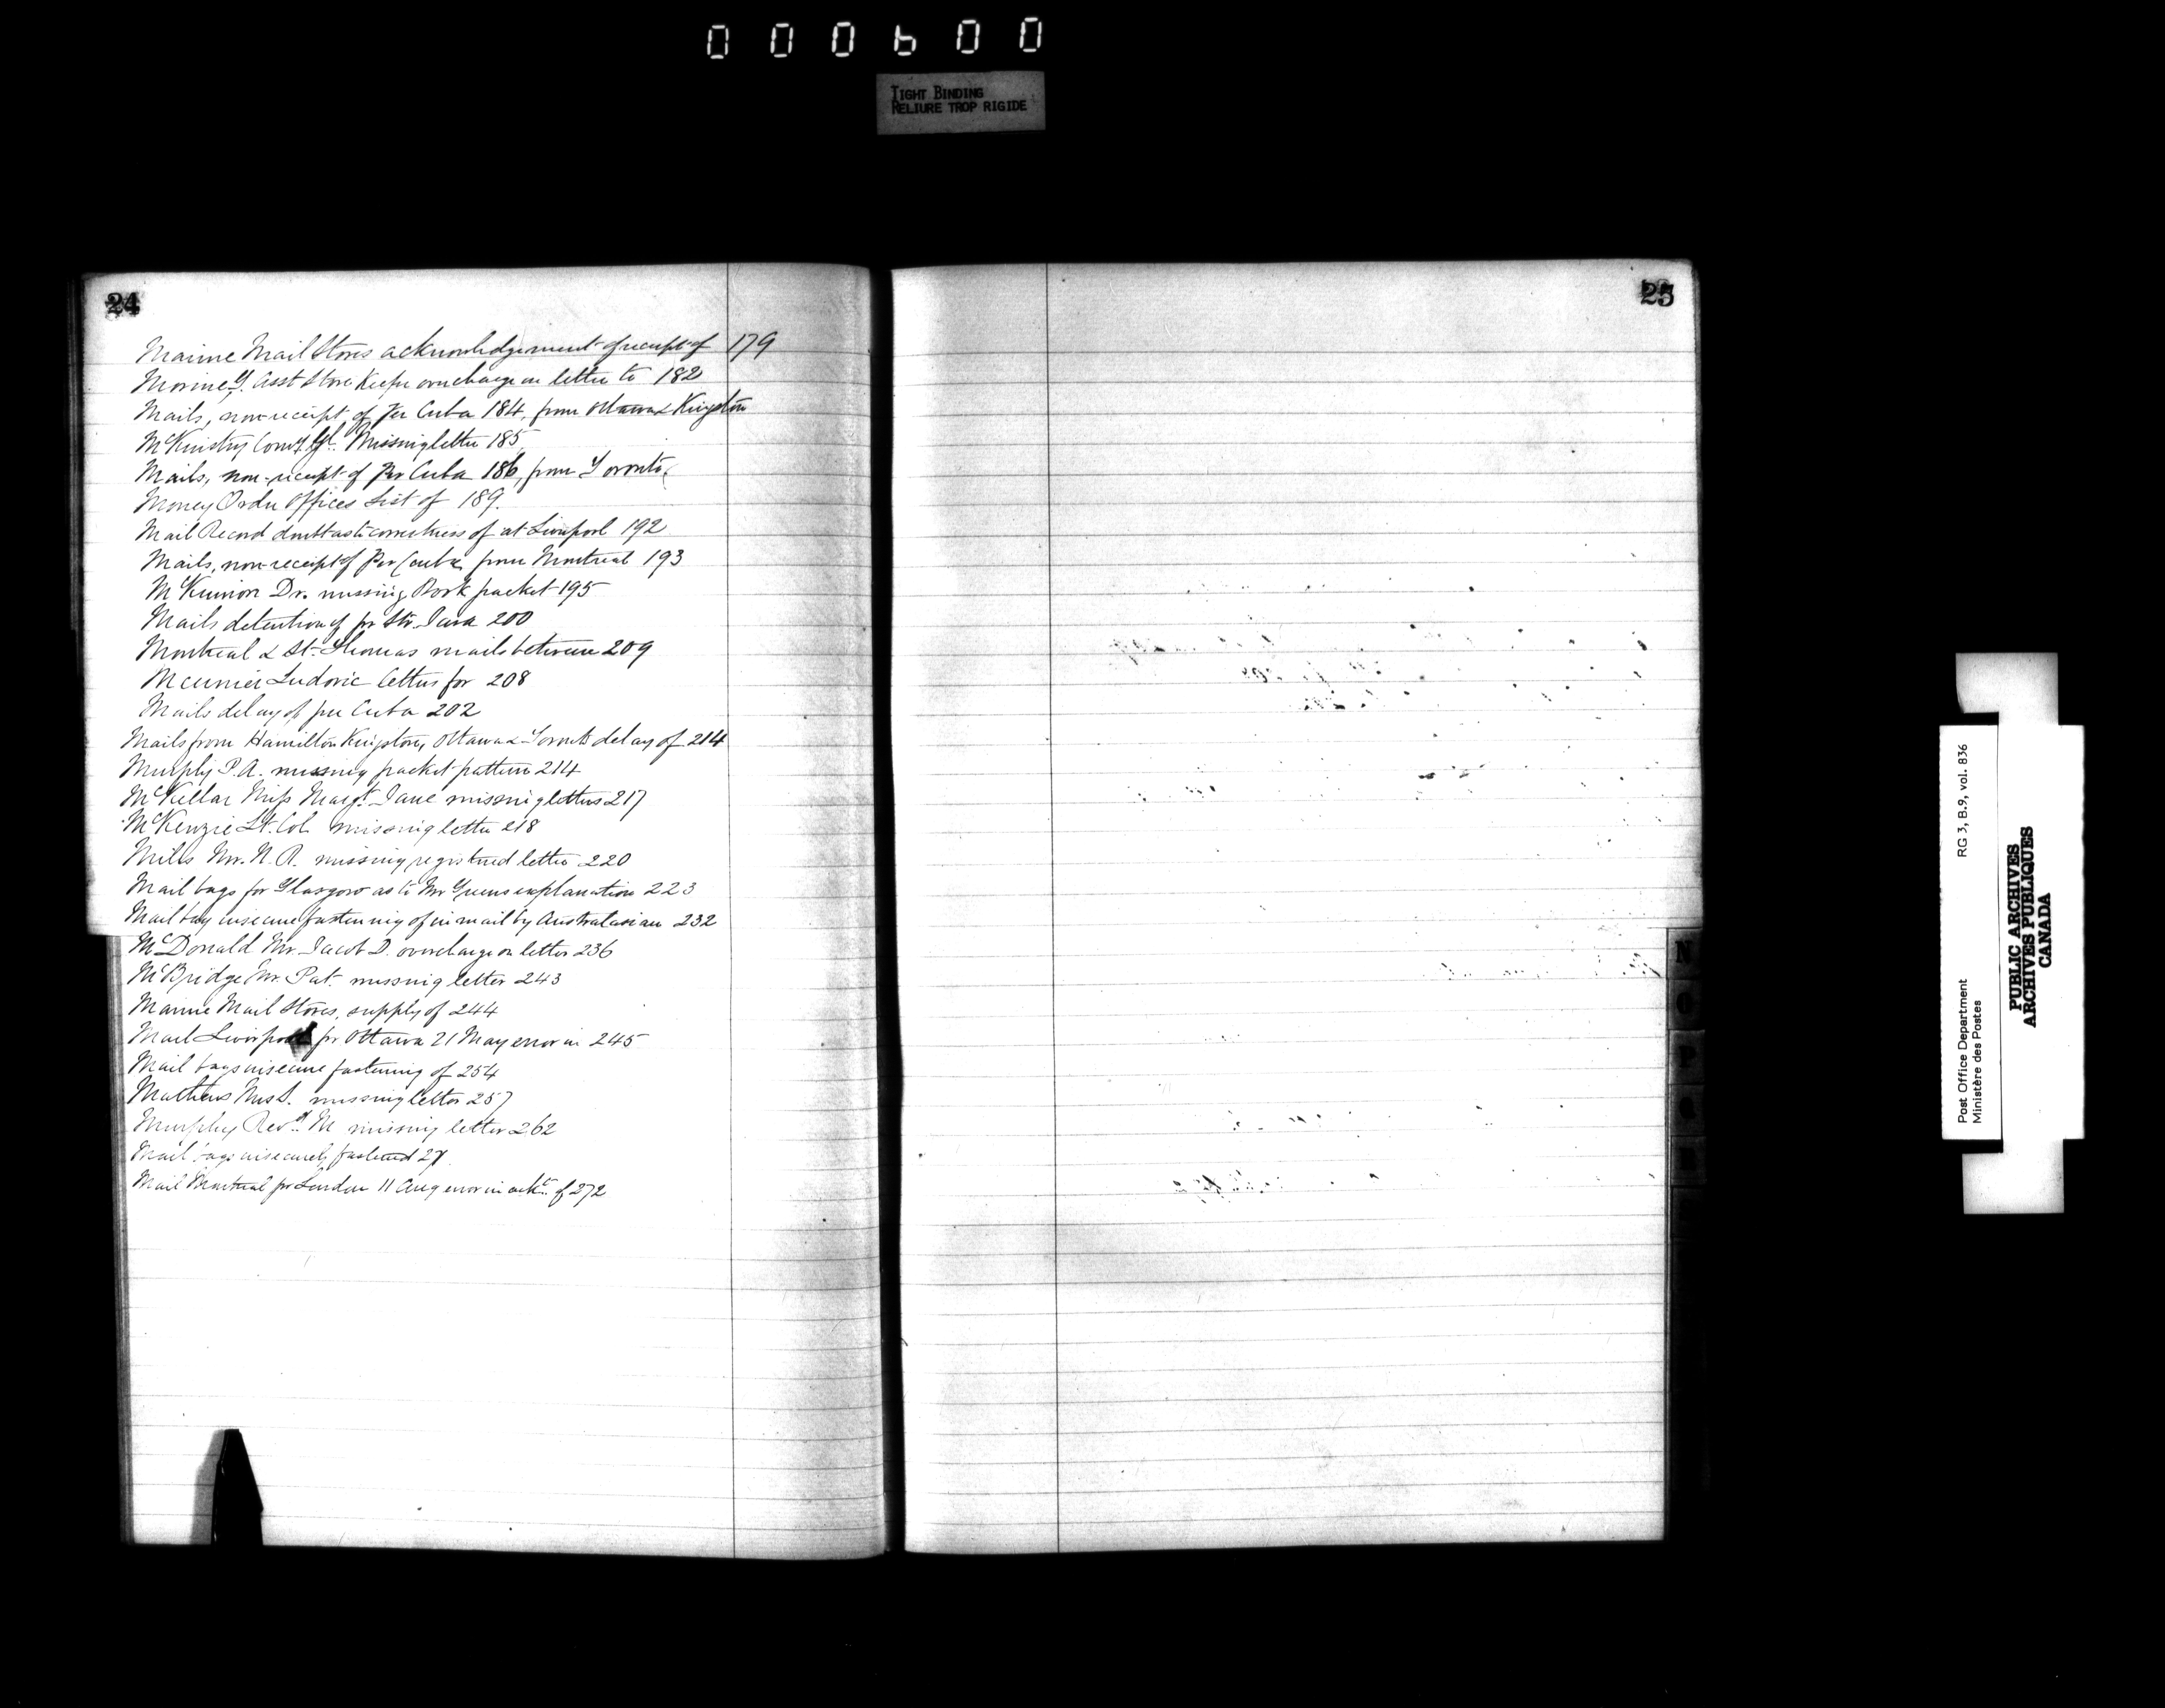 000600
TIGHT BINDING
RELIURE TROP RIGIDE
24
Marine Mail Stores acknowledgement of receipt of 179
Morine J. Asst Store Keeper overcharge on letter to 182
Mails, non-receipt of Per Cuba 184, from Ottawa & Kingston
McKinstry Missing letter 185
Mails, non-receipt of Per Cuba 186, from Toronto
Money Order Offices List of 189.
Mail Record doubt as to correctness of at Liverpool 192
Mails, non-receipt of Per Cuba from Montreal 193
McKinnon Dr. missing Book packet 195
Mails detention of pr Str. Java 200
Montreal & St. Thomas mails between 209
Meunier Ludovic letters for 208
Mails delay of per Cuba 202
Mails from Hamilton Kingston, Ottawa & Toronto delay of 214
Murphy P.A. missing packet pattern 214
McKellar Miss Margt. Jane missing letters 217
McKenzie Lt. Col. missing letter 218
Mills Mr. N. R. missing registered letter 220
Mail bags for Glasgow as to Mr Greens explanation 223
Mail bag insecure fastening of in mail by Australasian 232
McDonald Mr. Jacob D. overcharge on letter 236
McBridge Mr. Pat. missing letter 243
Marine Mail Stores, supply of 244
Mail Liverpool pr Ottawa 21 May error in 245
Mail bags insecure fastening of 254
Mathews Miss S. missing letter 257
Murphy Revd. M missing letter 262
Mail bags insecurely fastened 27
Mail Montreal pr London 11 Aug error in of 272
25
N
O
P
Post Office Department RG 3, B.9, vol. 836
Ministère des Postes
PUBLIC ARCHIVES
ARCHIVES PUBLIQUES
CANADA